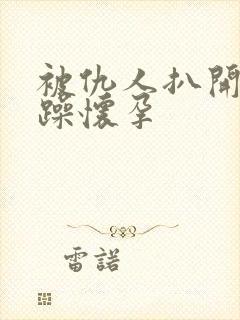 被仇人扒開
躁懷孕
雷諾